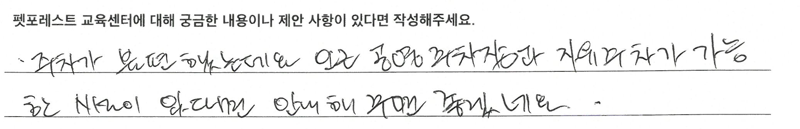 펫포레스트 교육센터에 대해 궁금한 내용이나 제안 사항이 있다면 작성해주세요.
· 주차가 불편했는데요 인근 공영주차장과 지원주차가 가능
한 시간이 있다면 안내해 주면 좋겠네요.